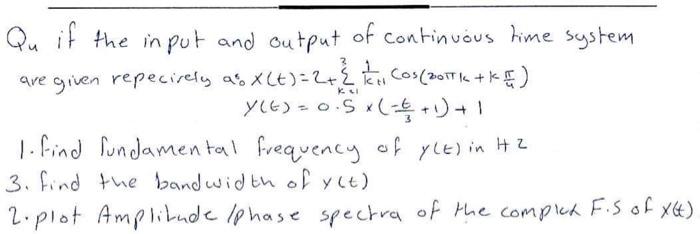 Qu if the input and output of continuous time system
are given repecirely as: x(t) = 2 + \sum_{k=1}^{3} \frac{1}{k+1} Cos(20πk + k\frac{π}{4})
y(t) = 0.5 x(-\frac{t}{3} + 1) + 1
1. find fundamental frequency of y(t) in HZ
3. find the bandwidth of y(t)
2. plot Amplitude /phase spectra of the complex F.S of x(t)